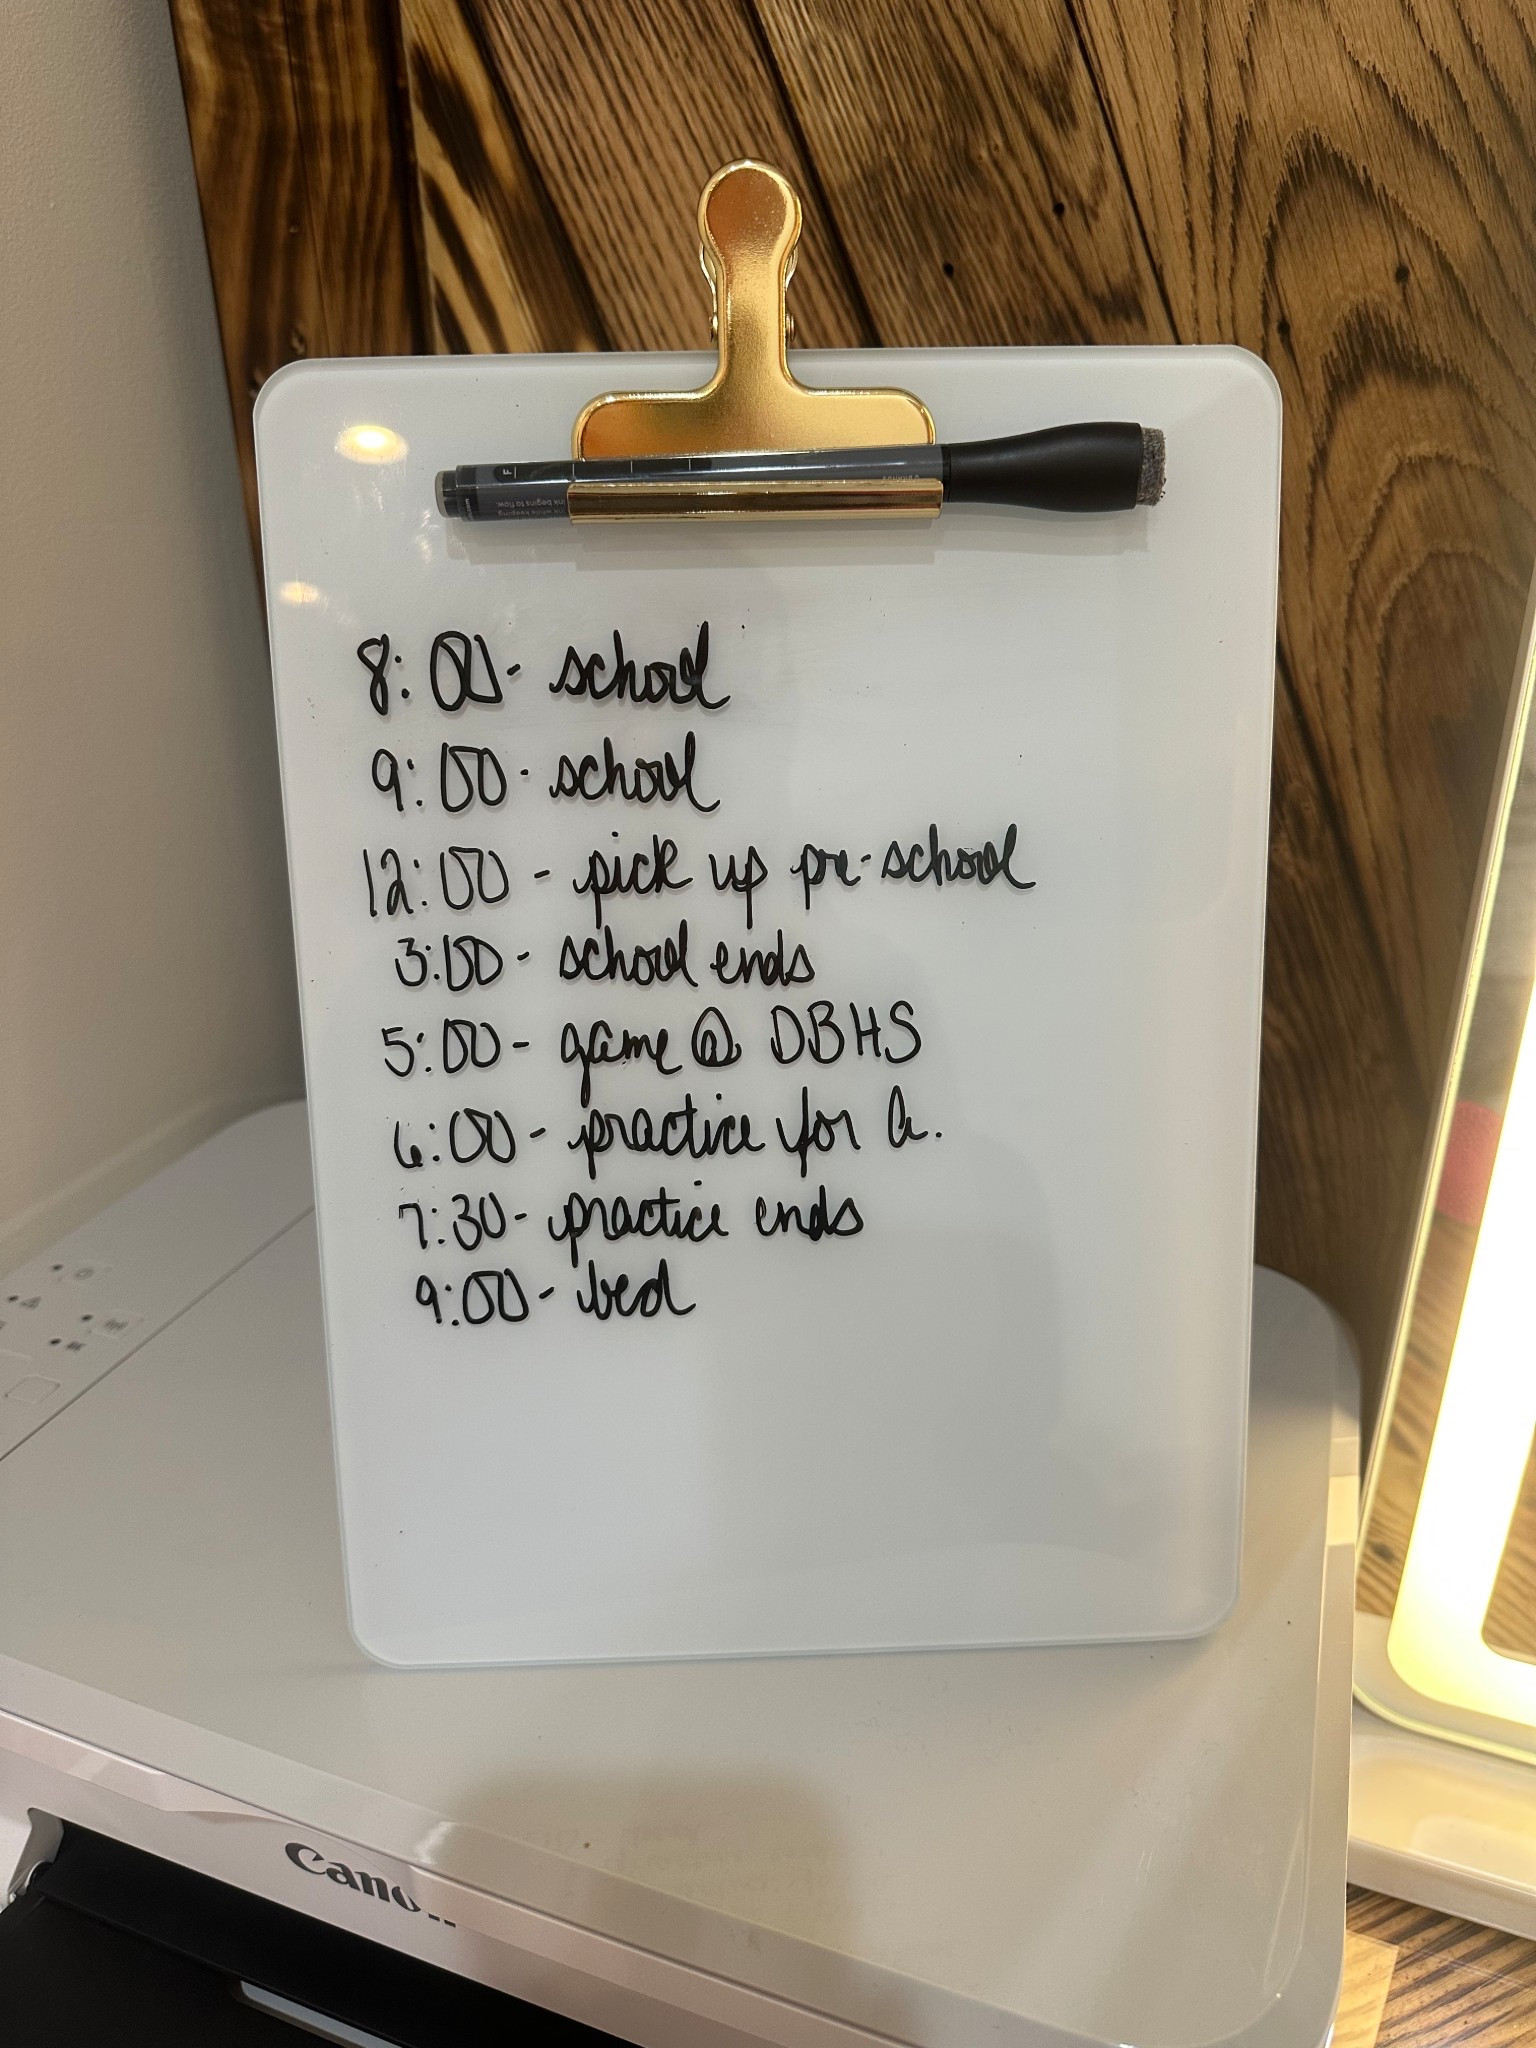 8:00- school
9:00- school
12:00 - pick up pre-school
3:00- school ends
5:00- game @ DBHS
6:00- practice for A.
7:30- practice ends
9:00- bed